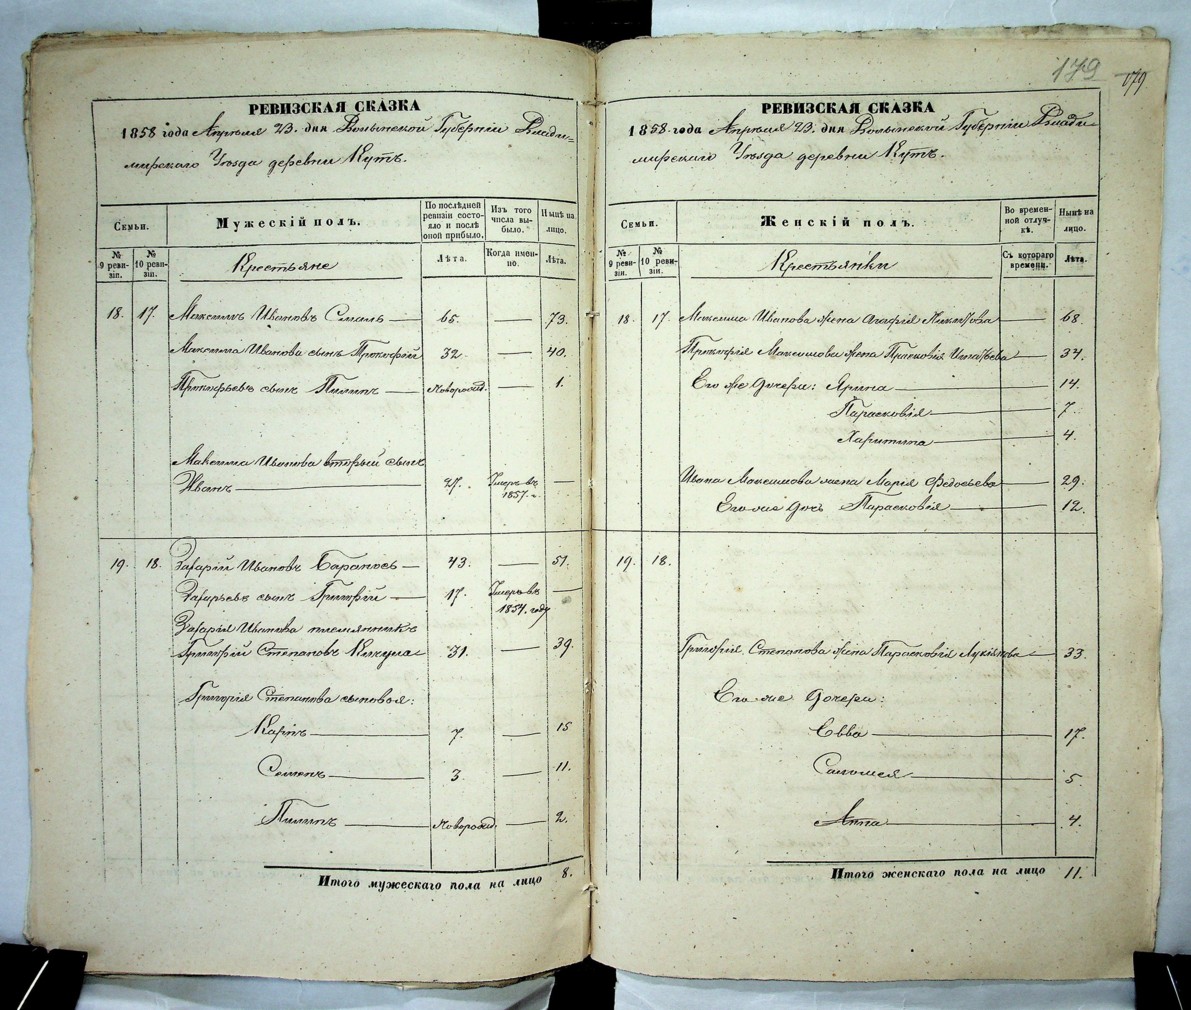 179
179
РЕВИЗСКАЯ СКАЗКА
1858 года Апреля 23. дня Волынской Губернiи Влади-
мирскаго Уѣзда деревни Кутъ.
Семьи.
Мужескiй полъ.
По послѣдней ревизiи состояло и послѣ оной прибыло.
Изъ того числа выбыло.
Нынѣ на лицо.
№ 9 ревизiи.
№ 10 ревизiи.
Крестьяне
Лѣта.
Когда именно.
Лѣта.
18. 17. Максимъ Ивановъ 65. — 73.
Максима Иванова сынъ Прокофiй 32. — 40.
Прокофьевъ сынъ Пилипъ — Новорожд. — 1.
Максима Иванова вторый сынъ
Иванъ — 27. Умеръ въ 1857. —
19. 18. Захарiй Ивановъ — 43. — 51.
Захарьевъ сынъ Григорiй — 17. Умеръ въ 1854. году —
Захарiя Иванова племянникъ
Григорiй Степановъ 31. — 39.
Григорiя Степанова сыновья:
Карпъ — 7. — 15
Семенъ — 3. — 11.
Пилипъ — Новорожд. — 2.
Итого мужескаго пола на лицо 8.
РЕВИЗСКАЯ СКАЗКА
1858. года Апреля 23. дня Волынской Губернiи Влади-
мирскаго Уѣзда деревни Кутъ.
Семьи.
Женскiй полъ.
Во временной отлучкѣ.
Нынѣ на лицо.
№ 9 ревизiи.
№ 10 ревизiи.
Крестьянки
Съ котораго времени.
Лѣта.
18. 17. Максима Иванова жена Агафiя — 68.
Прокофiя Максимова жена Прасковiя Игнатьева — 34.
Его же дочери: Ярина — 14.
Парасковiя — 7.
Харитина — 4.
Ивана Максимова жена Марiя Федосьева — 29.
Его же дочь Парасковiя — 12.
19. 18.
Григорiя Степанова жена Парасковiя — 33.
Его же дочери:
Евва — 17.
Саломея — 5
Анна — 4.
Итого женскаго пола на лицо 11.